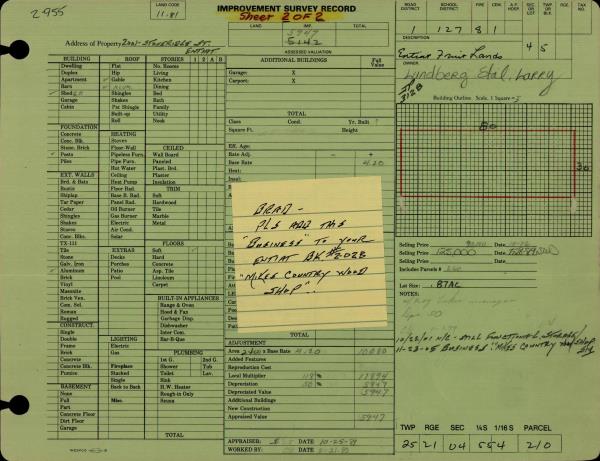 2955
LAND CODE
11-81
IMPROVEMENT SURVEY RECORD
Sheet 2 of 2
LAND
IMP.
TOTAL
5947
5142
ASSESSED VALUATION
Address of Property
ENTIAT
ROAD DISTRICT
SCHOOL DISTRICT
FIRE
CEM.
SEC. OR LOT
TWP. OR BLK.
127 8 1
4 5
Entiat Fruit Lands
OWNER
Lyndberg Etal, Larry
Building Outline Scale, 1 Square =
80
BUILDING
Dwelling
Duplex
Apartment
Barn
Shed
Garage
Cabin
ROOF
Flat
Hip
Gable
Shingles
Shakes
Pat Shingle
Built-up
Roll
STORIES 1 2 A B
No. Rooms
Living
Kitchen
Dining
Bed
Bath
Family
Utility
Nook
FOUNDATION
Concrete
Conc. Blk.
Stone
Posts
Piles
HEATING
Stoves
Floor-Wall
Pipeless Furn.
Pipe Furn.
Hot Water
Ceiling
Heat Pump
Floor Rad.
Base B. Rad.
Panel Rad.
Oil Burner
Gas Burner
Electric
Air Cond.
Solar
CEILED
Wall Board
Paneled
Plast. Brd.
Plaster
Insulation
TRIM
Soft
Hardwood
Tile
Marble
Metal
EXT. WALLS
Brd. & Bats
Rustic
Shiplap
Tar Paper
Cedar
Shingles
Shakes
Stucco
Conc. Blks.
TX-111
Tile
Stone
Galv. Iron
Aluminum
Brick
Vinyl
Masonite
Brick Ven.
Com. Sel.
Roman
Rugged
EXTRAS
Decks
Porches
Patio
Pool
FLOORS
Soft
Hard
Concrete
Asp. Tile
Linoleum
Carpet
BUILT-IN APPLIANCES
Range & Oven
Hood & Fan
Garbage Disp.
Dishwasher
Inter Com.
Bar-B-Que
CONSTRUCT.
Single
Double
Frame
Brick
Concrete
Concrete Blk.
Pumice
LIGHTING
Electric
Gas
Fireplace
Stacked
Single
Back to Back
PLUMBING
1st G. 2nd G.
Shower Tub
Toilet Lav.
Sink
H.W. Heater
Rough-in Only
Rmns.
BASEMENT
None
Full
Part
Concrete Floor
Dirt Floor
Garage
Misc.
TOTAL
ADDITIONAL BUILDINGS
Full Value
Garage: X
Carport: X
TOTAL
Class Cond. Yr. Built ?
Square Ft. Height
Eff. Age:
Rate Adj. - +
Base Rate 4.20
Heat:
Insul:
BRAD -
PLS ADD THIS
"BUSINESS" TO YOUR
ENTIAT BK #2028
"MIKES COUNTRY WOOD
SHOP".
ADJUSTMENT
Area 2400 x Base Rate 4.20 10080
Added Features
Reproduction Cost
Local Multiplier 118% 11894
Depreciation 50 % 5947
Depreciated Value 5947
Additional Buildings
New Construction
Appraised Value 5947
APPRAISER: DATE 10-25-89
WORKED BY: DATE
Selling Price
Selling Price 125,000
Selling Price
Includes Parcels #
Lot Size: .87AC
NOTES:
11-23-05 BUSINESS "MIKES COUNTRY
TWP RGE SEC ¼S 1/16 S PARCEL
25 21 04 554 210